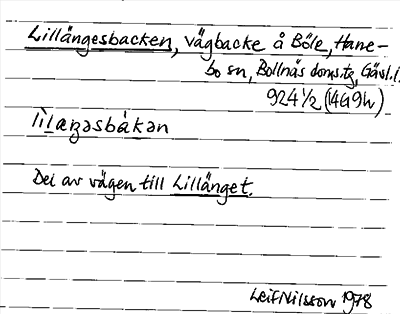 Lillängesbacken, vägbacke å Böle, Hane-
bo sn, Bollnäs doms.tg, Gävl.l.
924 1/2 (14G9h)
Del av vägen till Lillänget.
Leif Nilsson 1978